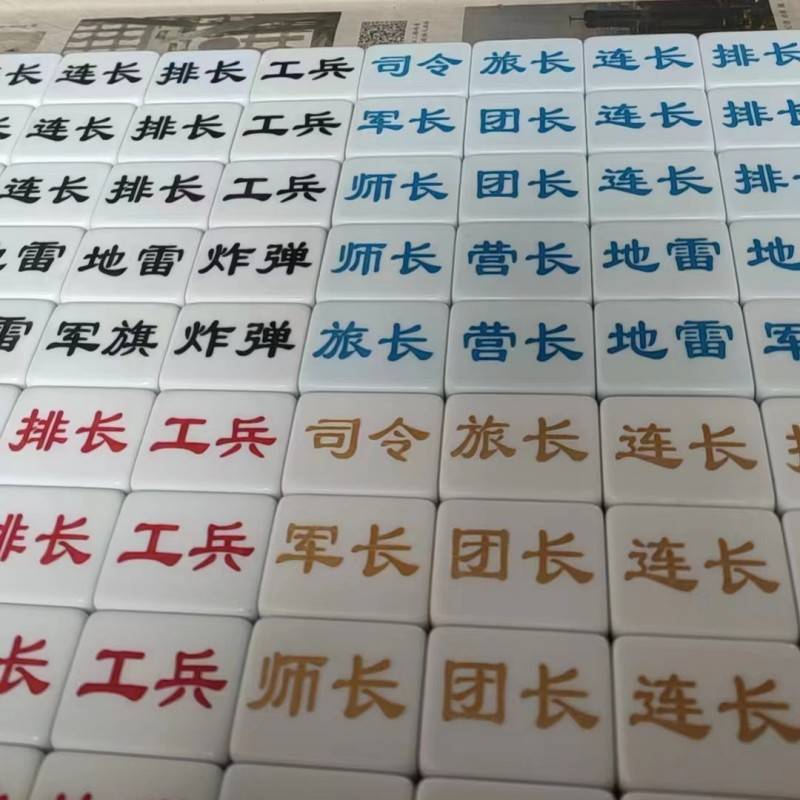 长 连长 排长 工兵 司令 旅长 连长 排长
长 连长 排长 工兵 军长 团长 连长 排
连长 排长 工兵 师长 团长 连长 排
地雷 地雷 炸弹 师长 营长 地雷 地
雷 军旗 炸弹 旅长 营长 地雷 军
排长 工兵 司令 旅长 连长
排长 工兵 军长 团长 连长
长 工兵 师长 团长 连长